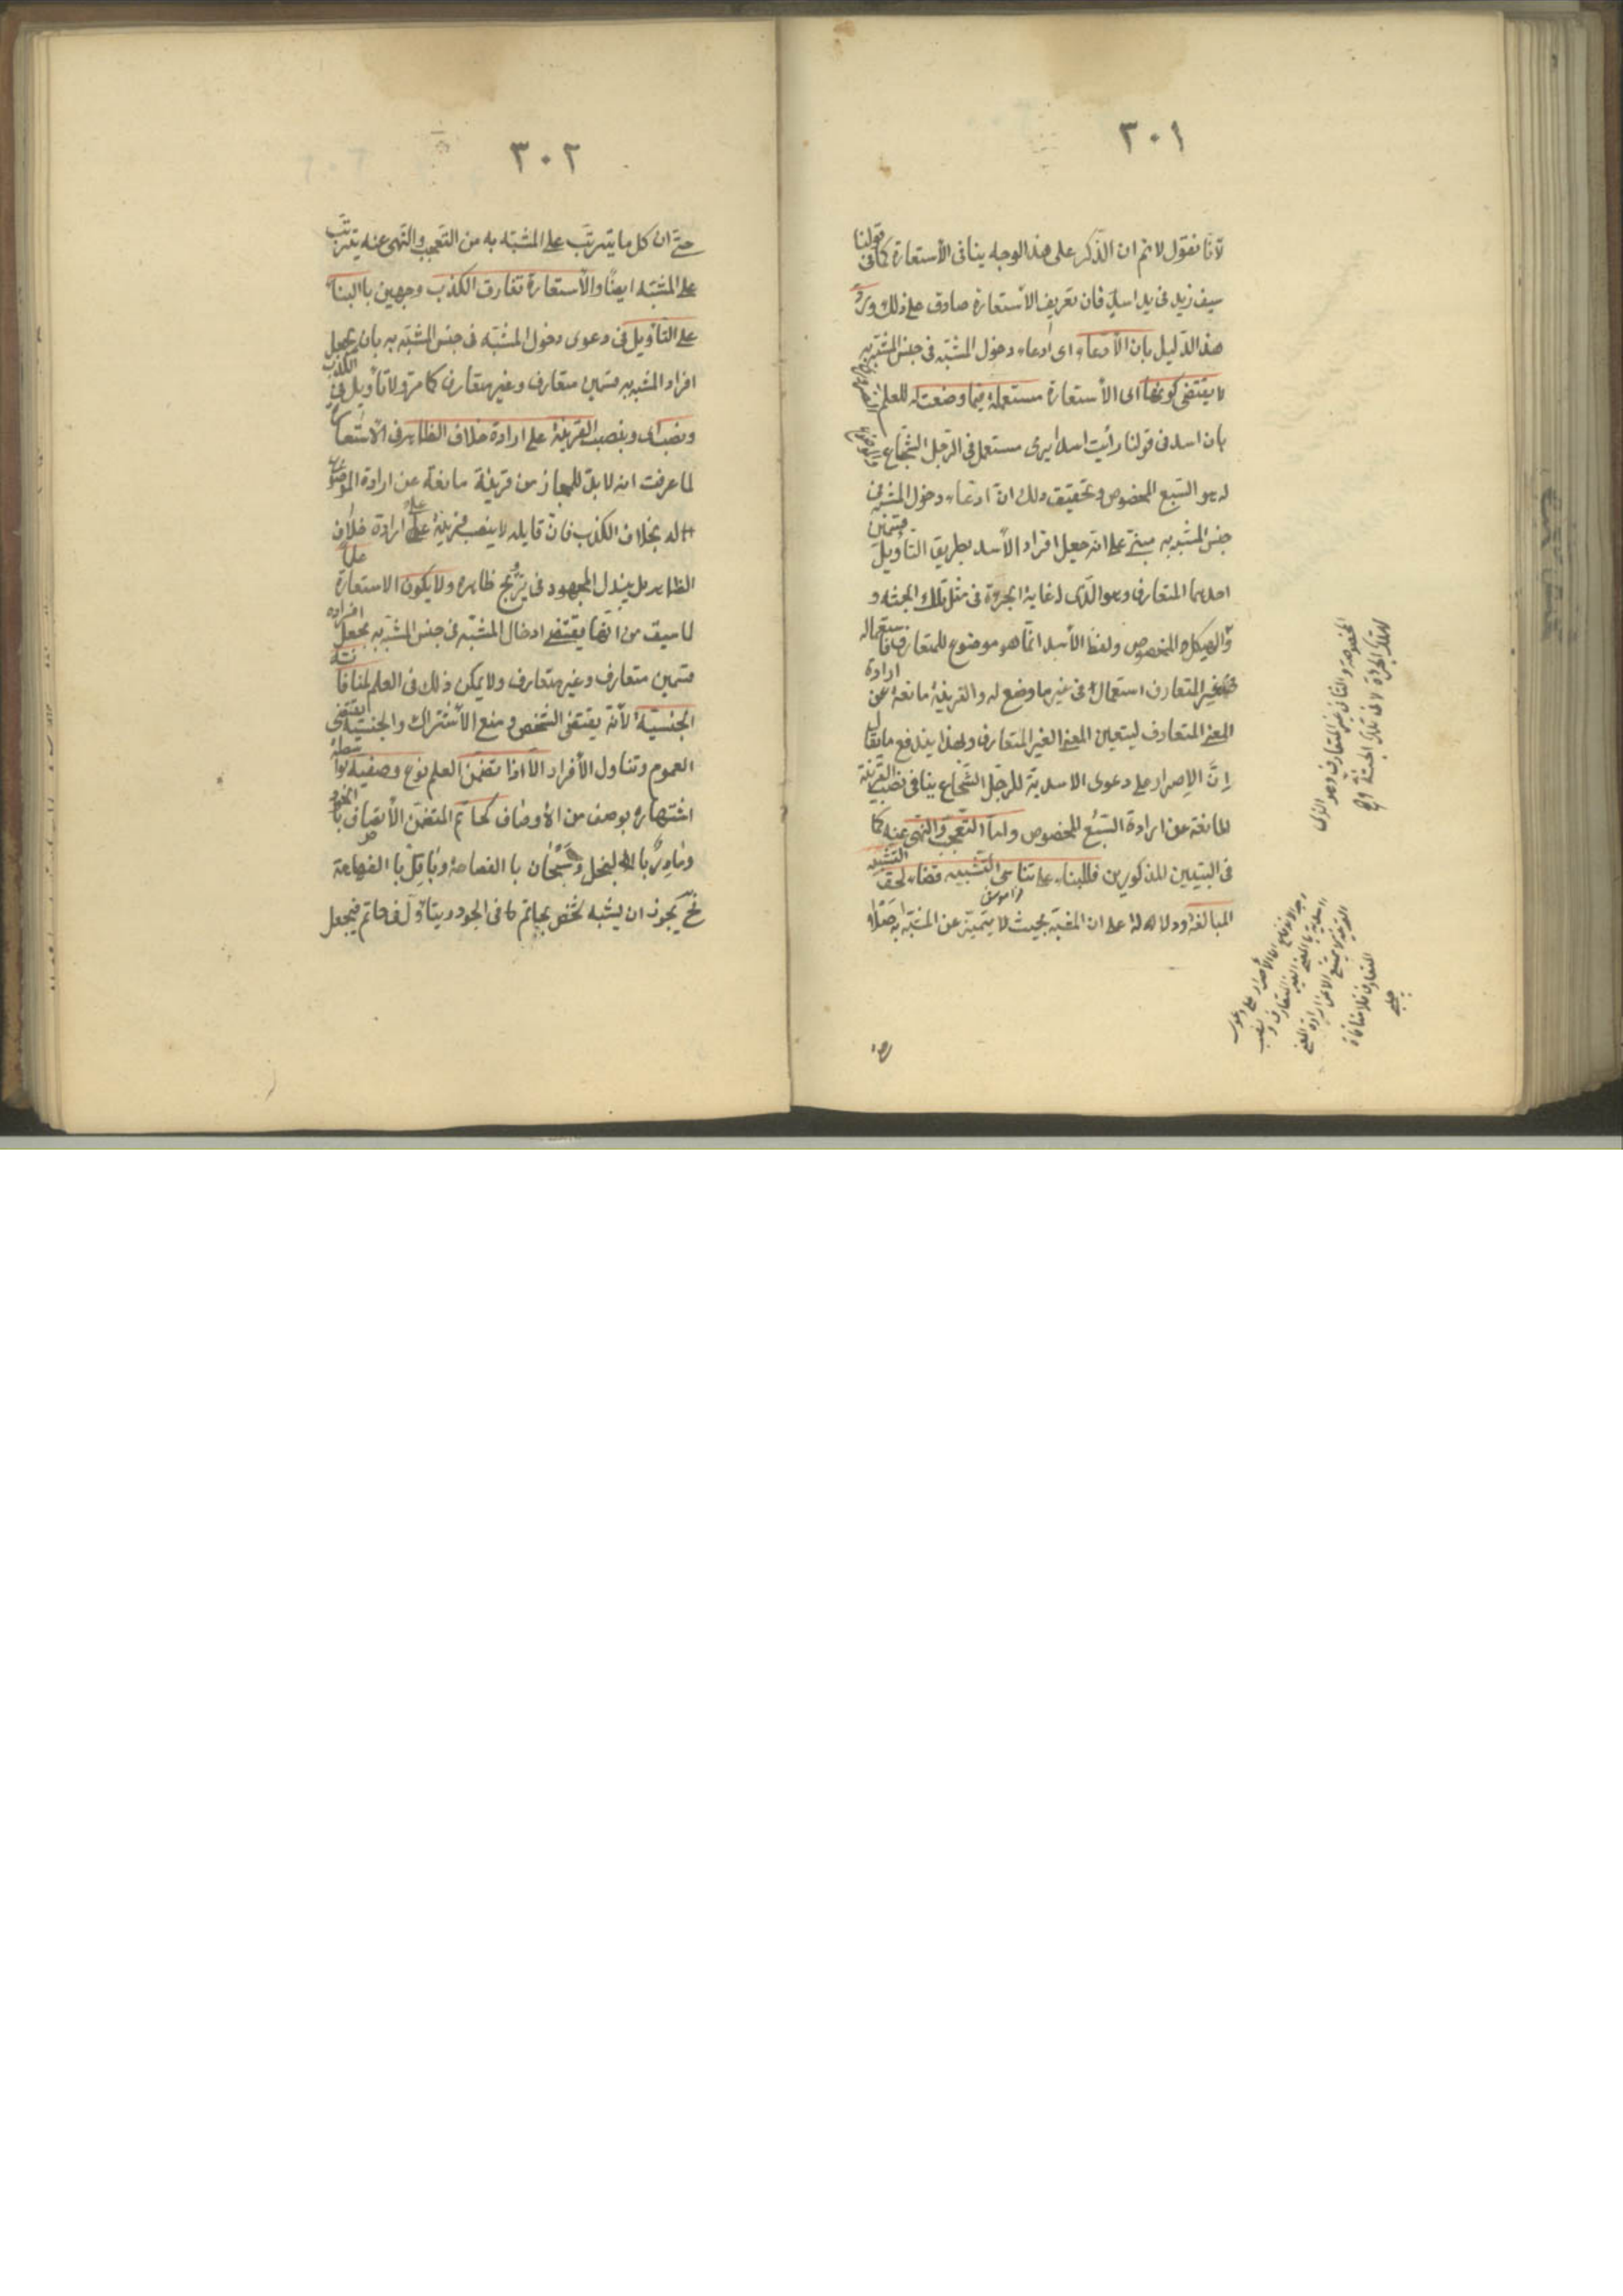 ٣٠١
لانا نقول لانم ان الذكر على هذا الوجه ينافى الأستعارة كما فى قولنا
سيف زيد فى يد اسد فان تعريف الاستعارة صادق على ذلك ورد
هذا الدليل بان الأدعاء اى ادعاء دخول المشبه فى جنس المشبه به
لا يقتضى كونها اى الأستعارة مستعملة فيما وضعت له للعلم
بان اسدا فى قولنا رأيت اسدا يرمى مستعمل فى الرجل الشجاع
له هو السبع المخصوص وتحقيق ذلك ان ادعاء دخول المشبه فى
جنس المشبه به مبنى على انه جعل افراد الأسد بطريق التأويل قسمين
احدهما المتعارف وهو الذى له غاية الجرءة فى مثل تلك الجثة و
والهيكل المخصوص ولفظ الأسد انما هو موضوع للمتعارف فاستعماله
فى غير المتعارف استعمال فى غير ما وضع له والقرينة مانعة عن ارادة
المعنى المتعارف ليتعين المعنى الغير المتعارف وبهذا يندفع ما يقال
اِنّ الإصرار على دعوى الاسدية للرجل الشجاع ينافى نصب القرينة
المانعة عن ارادة السبع المخصوص واما التعجب والنهى عنه كما
فى البيتين المذكورين فللبناء على تناسى التشبيه قضاء لحق
المبالغة ودلالة على ان المشبه بحيث لا يتميز عن المشبه به اصلا
المخصوصة والثانى غير المتعارف وهو الذى
له تلك الجرءة لا فى تلك الجثة
٣٠٢
حتى ان كل ما يترتب على المشبه به من التعجب والنهى عنه يترتب
على المشبه ايضا والأستعارة تفارق الكذب وجهين بالبناء
على التأويل فى دعوى دخول المشبه فى جنس المشبه به بان يجعل
افراد المشبه به قسمين متعارف وغير متعارف كما مر ولا تأويل فى الكذب
ونصب اى وبنصب القرينة على ارادة خلاف الظاهر فى الاستعارة
لما عرفت انه لا بد للمجاز من قرينة مانعة عن ارادة الموضوع
له بخلاف الكذب فان قايله لا ينصب قرينة على ارادة خلاف
الظاهر بل يبذل المجهود فى ترويج ظاهره ولا يكون الاستعارة علما
لما سبق من انها يقتضى ادخال المشبه فى جنس المشبه به بجعل افراده
قسمين متعارف وغير متعارف ولا يمكن ذلك فى العلم لمنافاته
الجنسية لأنه يقتضى التشخص ومنع الأشتراك والجنسية يقتضى
العموم وتناول الأفراد الا اذا تضمن العلم نوع وصفية بواسطة
اشتهاره بوصف من الأوصاف كحاتم المتضمن الأتصاف بالجود
ومادر بالبخل وسحبان با الفصاحة وباقل با الفهاهة
فح يجوز ان يشبه شخص بحاتم كا فى الجود ويتاول فى حاتم فيجعل